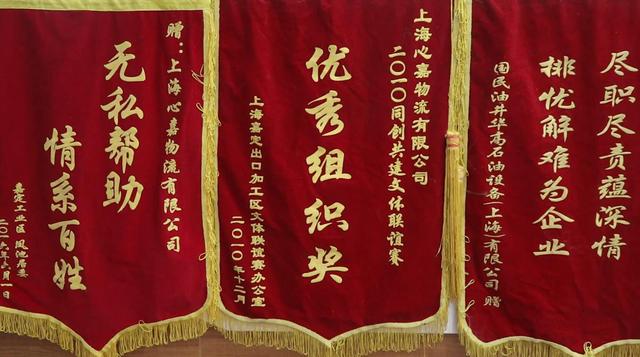 赠：上海心嘉物流有限公司
无私帮助
情系百姓
嘉定工业区 凤池居委
二〇一六年六月一日
上海心嘉物流有限公司
二〇一〇同创共建文体联谊赛
优秀组织奖
上海嘉定出口加工区文体联谊赛办公室
二〇一〇年十二月
尽职尽责蕴深情
排忧解难为企业
国民油井华高石油设备(上海)有限公司 赠